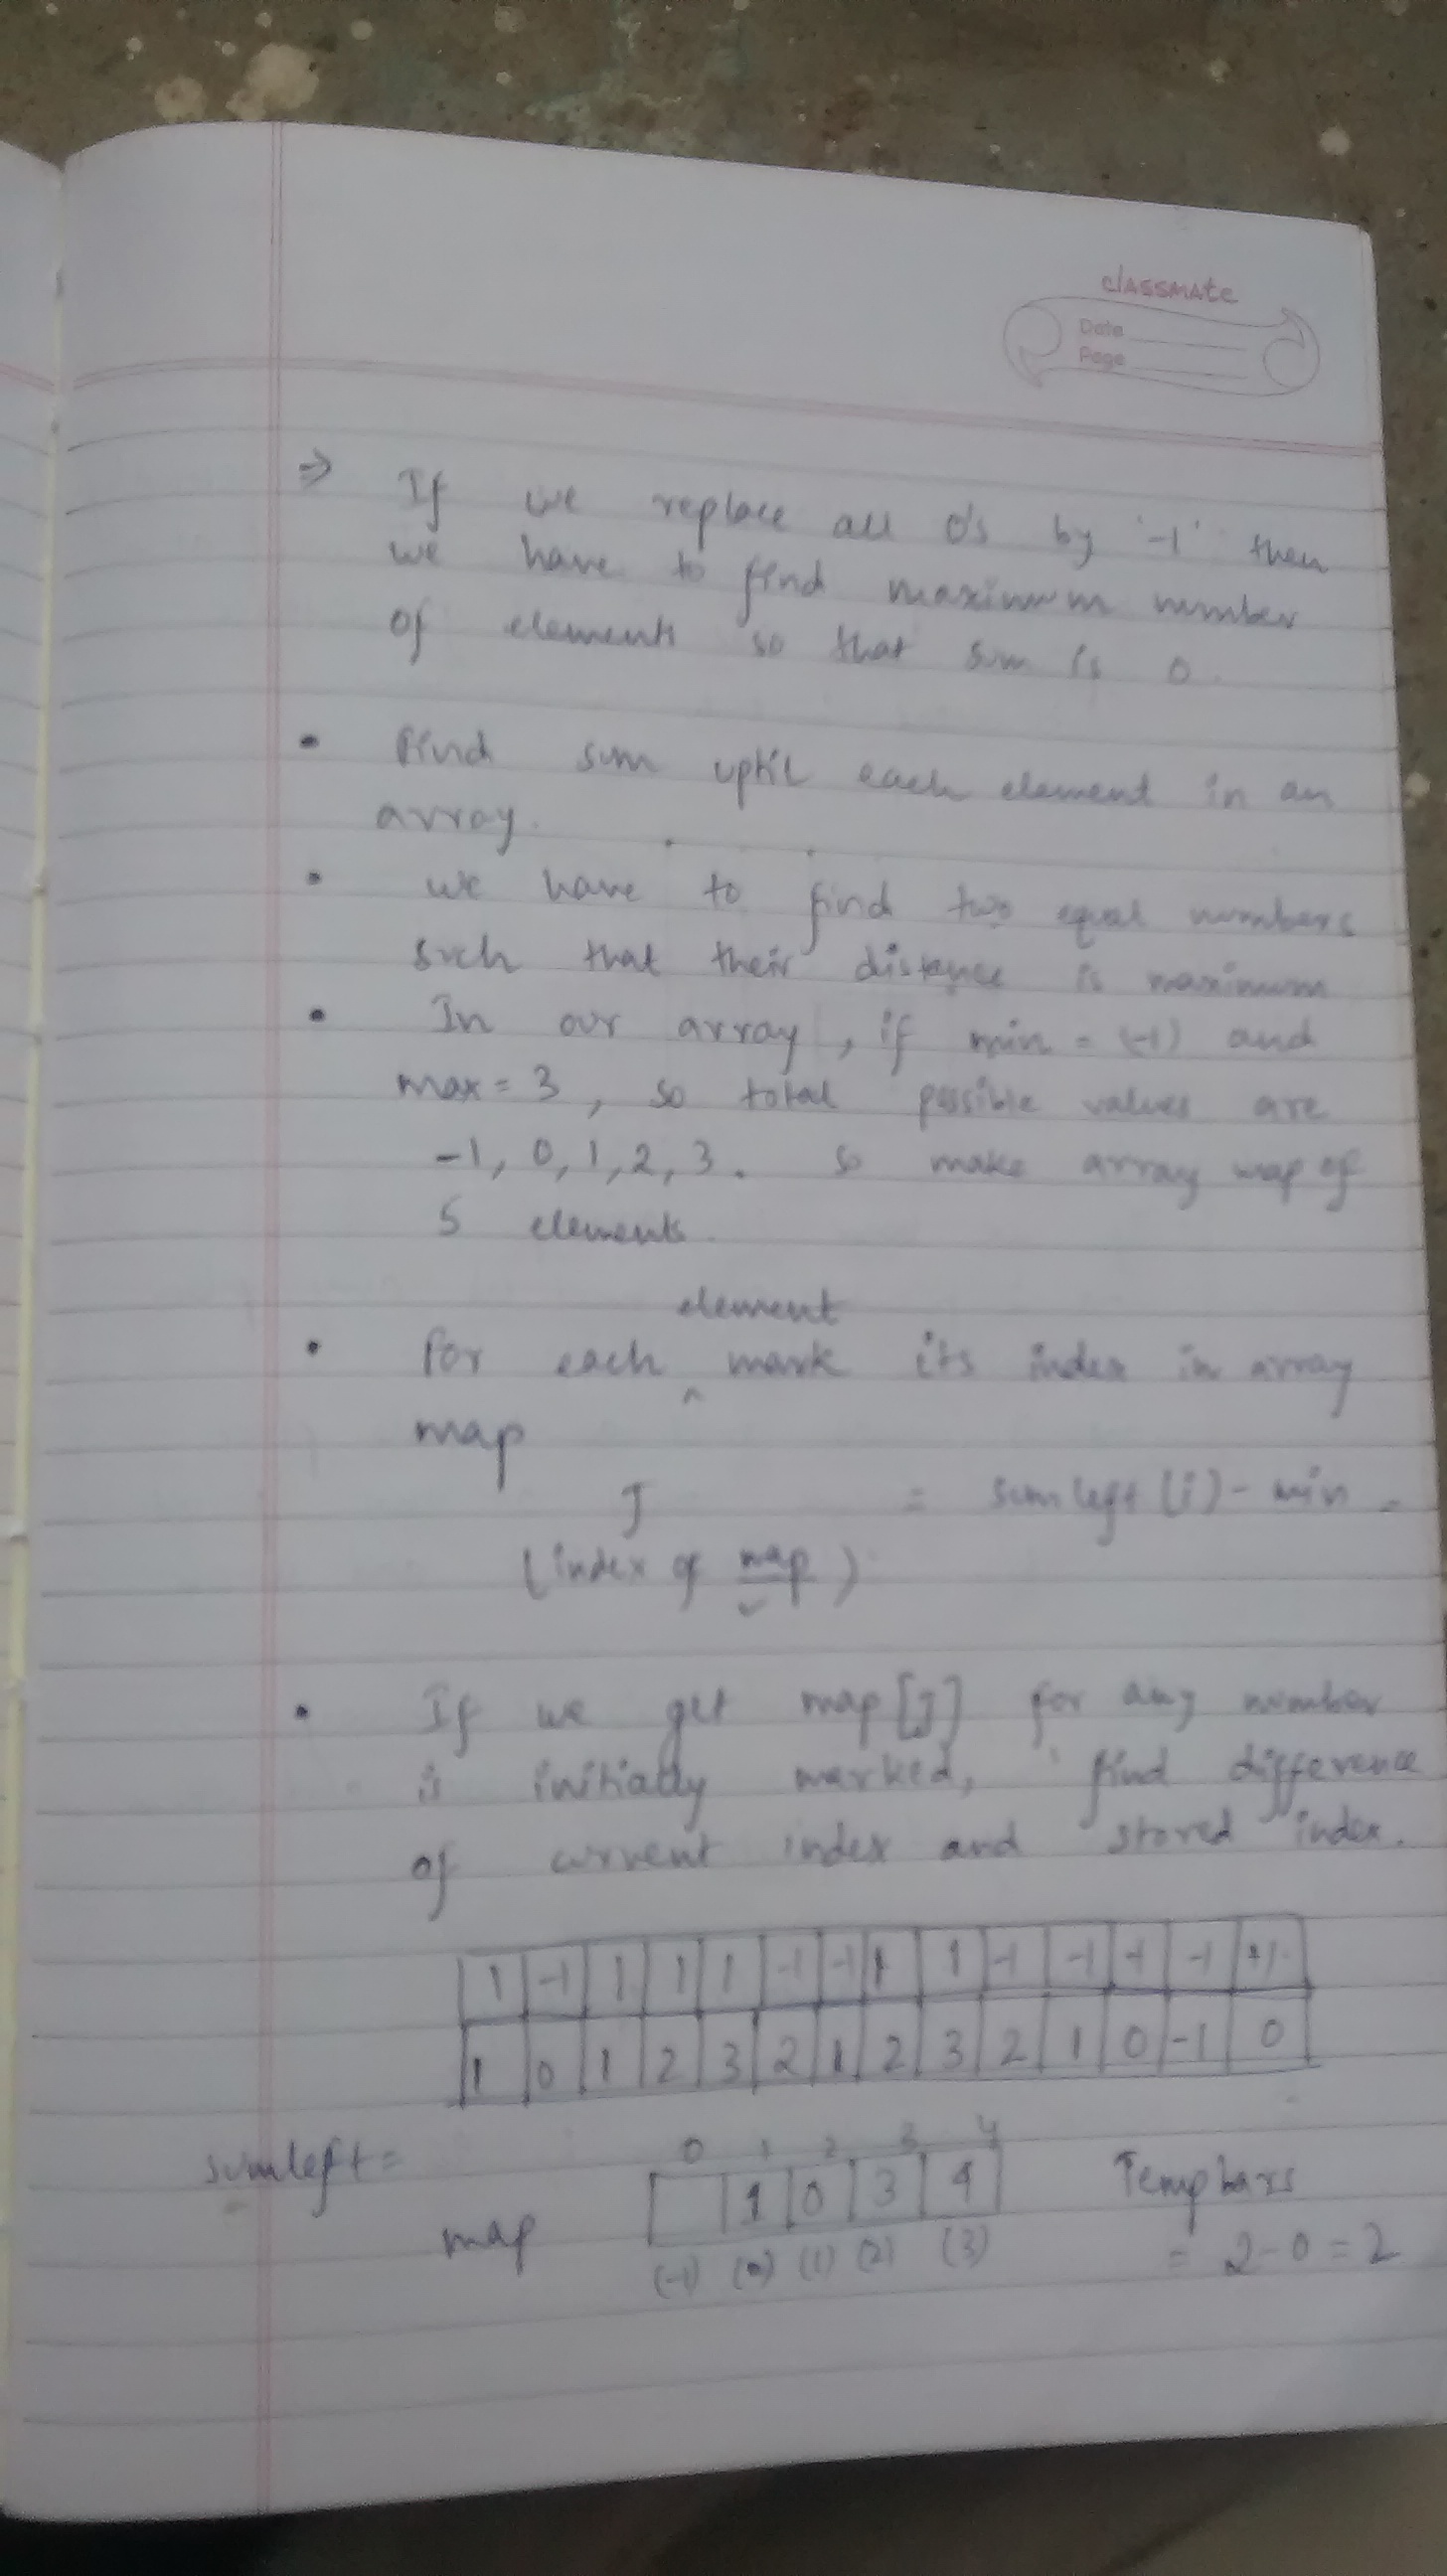 classmate
Date
Page
⇒ If we replace all 0's by '-1' then
we have to find maximum number
of elements so that sum is 0.
• Find sum uptil each element in an
array.
• we have to find two equal numbers
such that their distance is maximum
• In our array, if min = (-1) and
max = 3, so total possible values are
-1, 0, 1, 2, 3. so make array map of
5 elements.
element
• For each ^ mark its index in array
map
J = sumleft (i) - min
(index of map)
• If we get map[J] for any number
is initially marked, find difference
of current index and stored index.
1 -1 1 1 1 -1 -1 1 1 -1 -1 -1 -1 +1
1 0 1 2 3 2 1 2 3 2 1 0 -1 0
sumleft =
0 1 2 3 4
map 1 0 3 4
(-1) (0) (1) (2) (3)
= 2-0 = 2